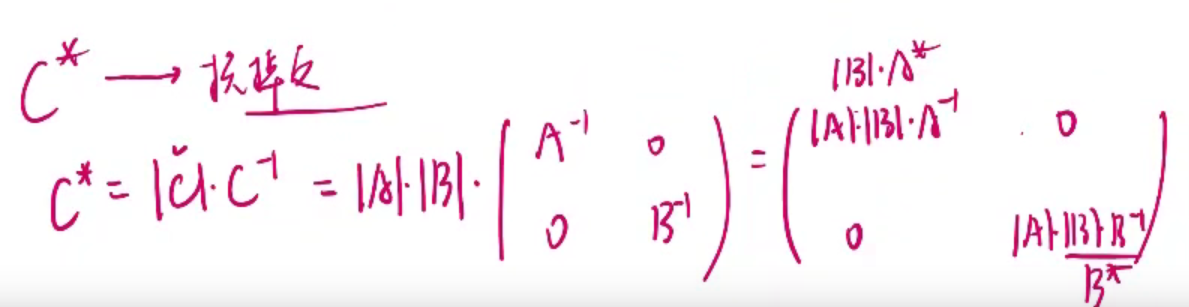 C* → 找
|B|·A*
C* = |C|·C⁻¹ = |A|·|B|·( A⁻¹ 0 ; 0 B⁻¹ ) = ( |A|·|B|·A⁻¹ 0 ; 0 |A|·|B|·B⁻¹ )
B*